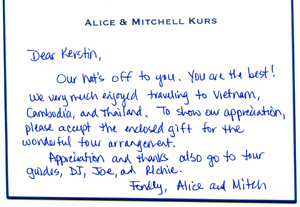 ALICE & MITCHELL KURS
Dear Kerstin,
Our hat's off to you. You are the best!
We very much enjoyed traveling to Vietnam,
Cambodia, and Thailand. To show our appreciation,
please accept the enclosed gift for the
wonderful tour arrangement.
Appreciation and thanks also go to tour
guides, DJ, Joe, and Richie.
Fondly, Alice and Mitch